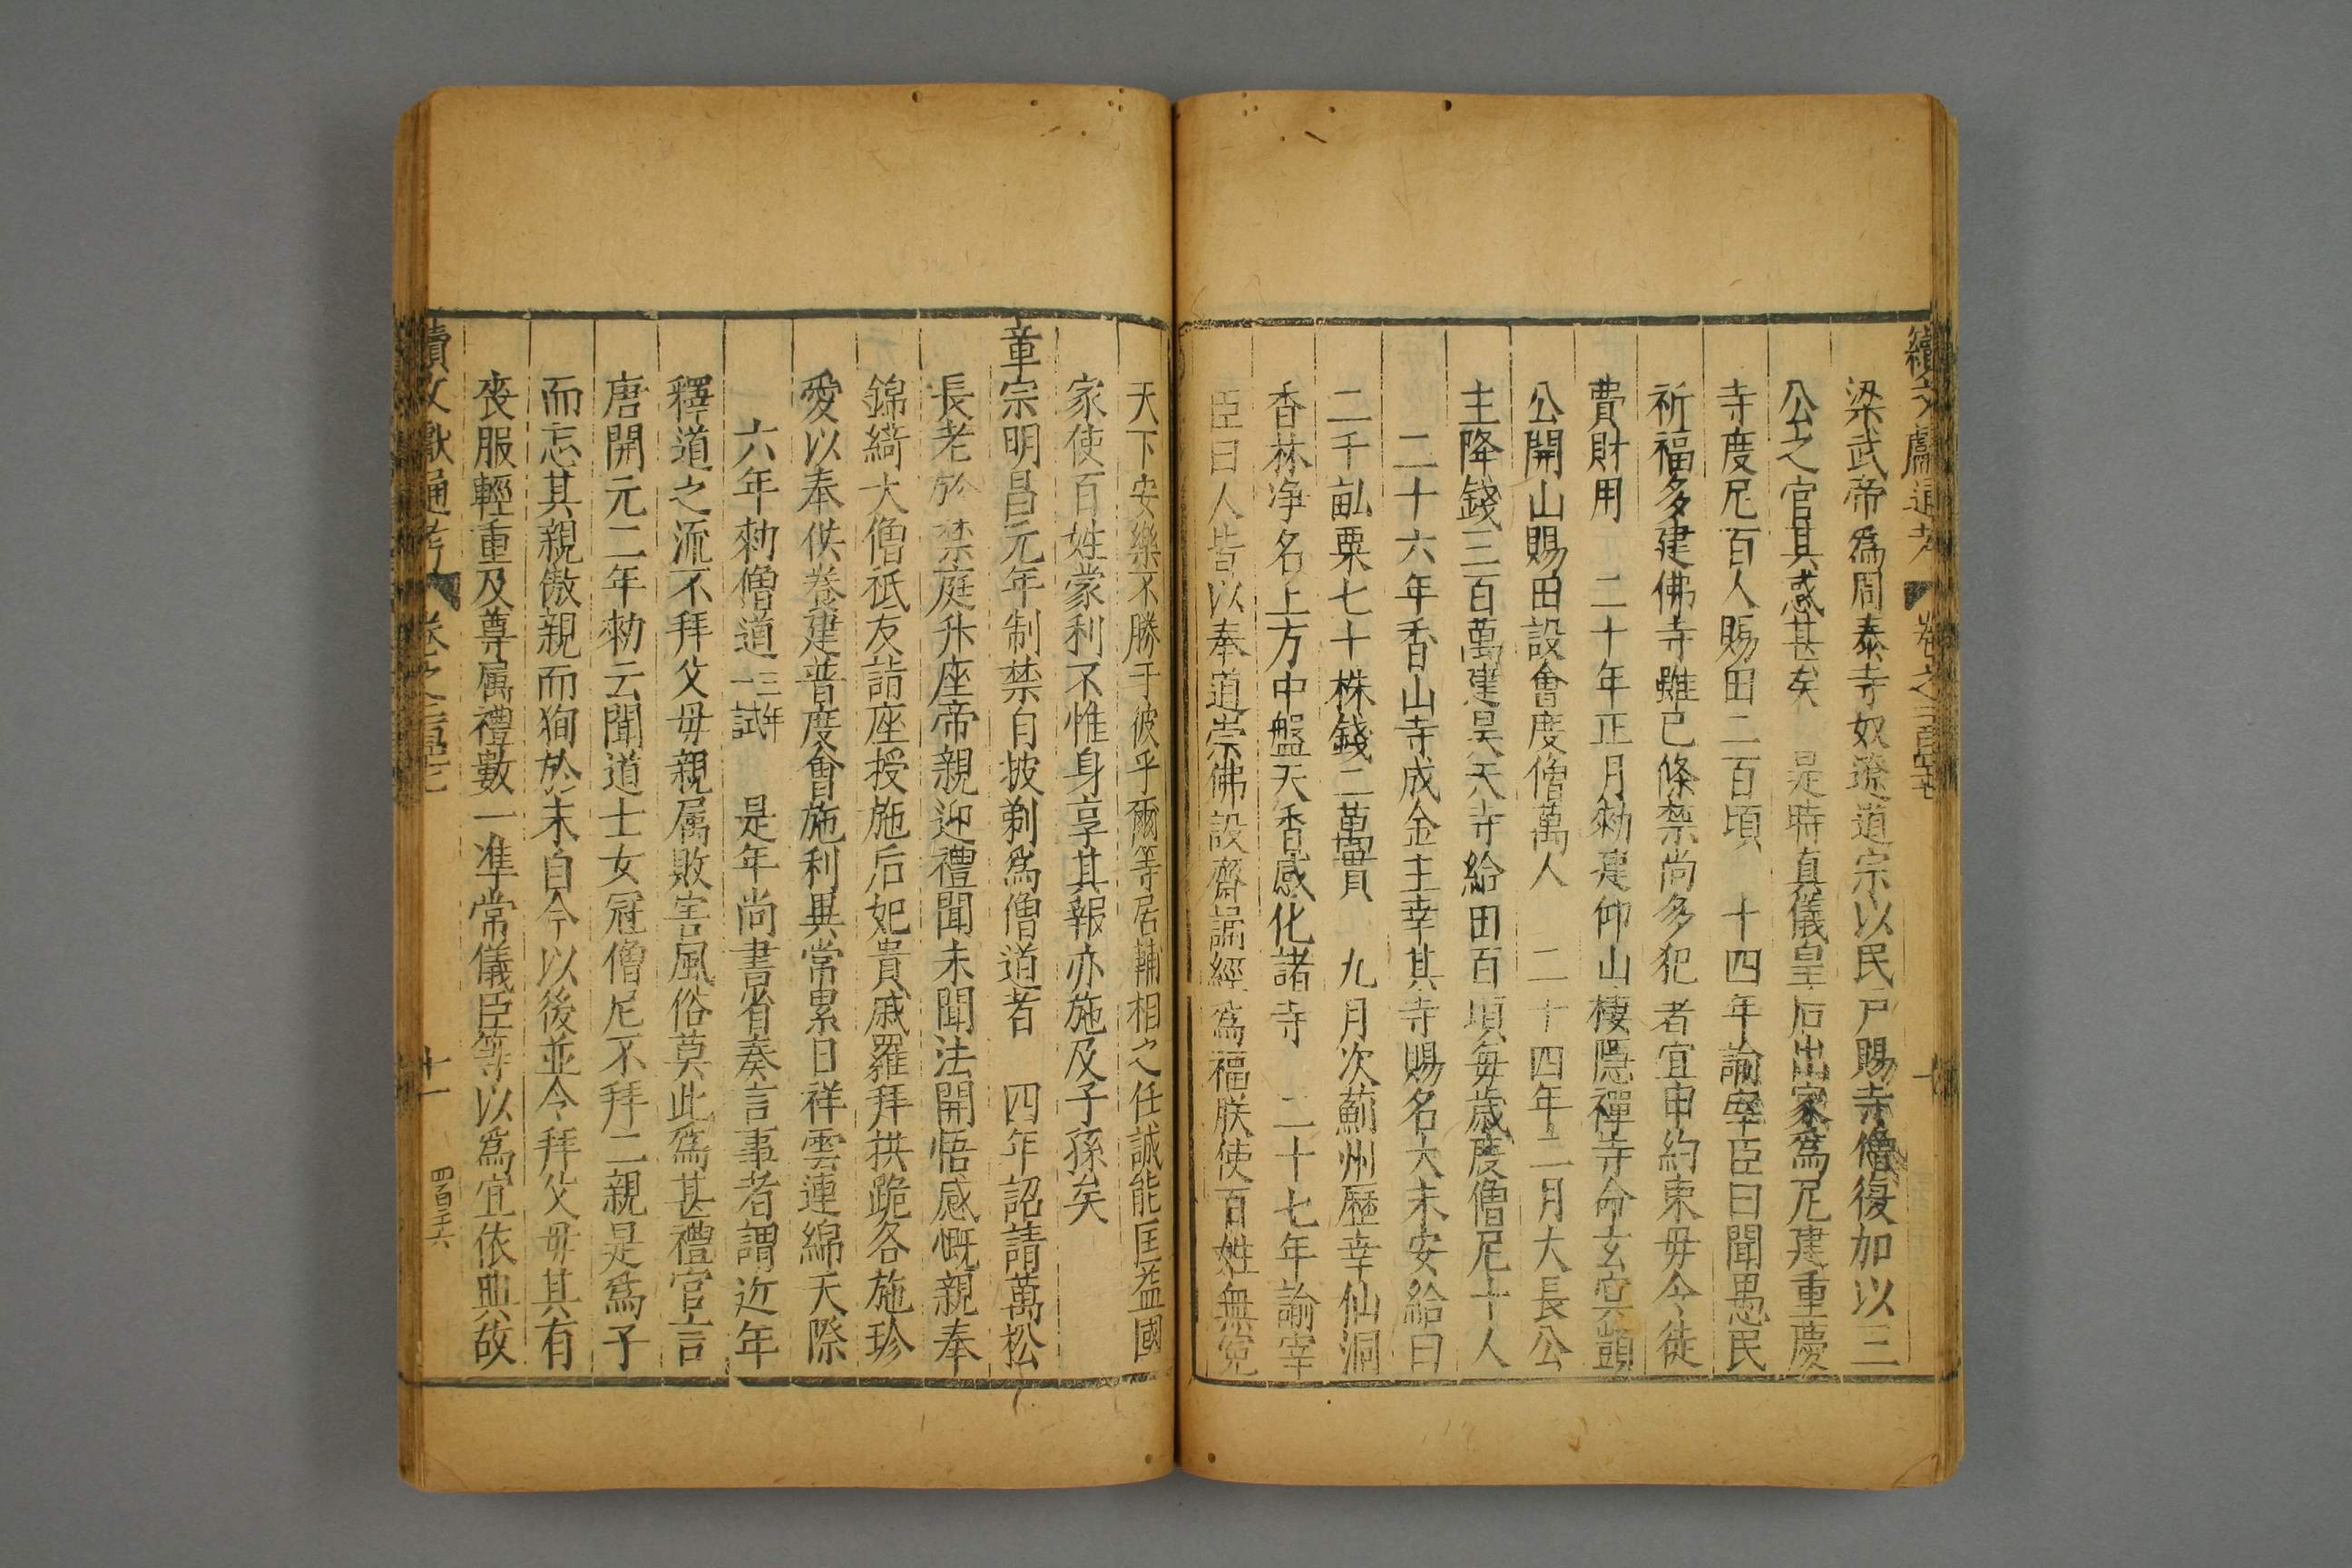 續文獻通考 卷之二百四十七
梁武帝爲同泰寺奴遼道宗以民戸賜寺僧復加以三
公之官其惑甚矣 是時真儀皇后出家爲尼建重慶
寺度尼百人賜田二百頃 十四年諭宰臣曰聞愚民
祈福多建佛寺雖已條禁尚多犯者宜申約束毋令徒
費財用 二十年正月勑建仰山棲隱禪寺命玄冥顗
公開山賜田設會度僧萬人 二十四年二月大長公
主降錢三百萬建昊天寺給田百頃每歲度僧尼十人
二十六年香山寺成金主幸其寺賜名大永安給田
二千畝粟七十株錢二萬貫 九月次薊州歷幸仙洞
香林淨名上方中盤天香感化諸寺 二十七年諭宰
臣曰人皆以奉道崇佛設齋誦經爲福朕使百姓無寃
天下安樂不勝于彼乎爾等居輔相之任誠能匡益國
家使百姓蒙利不惟身享其報亦施及子孫矣
章宗明昌元年制禁自披剃爲僧道者 四年詔請萬松
長老於禁庭升座帝親迎禮聞未聞法開悟感慨親奉
錦綺大僧祇友詣座授施后妃貴戚羅拜拱跪各施珍
愛以奉供養建普度會施利異常累日祥雲連綿天際
六年勑僧道三年一試 是年尚書省奏言事者謂近年
釋道之流不拜父母親属敗害風俗莫此爲甚禮官言
唐開元二年勑云聞道士女冠僧尼不拜二親是爲子
而忘其親傲親而狥於末自今以後並令拜父毋其有
喪服輕重及尊属禮數一准常儀臣等以爲宜依典故
續文獻通考 卷之
十一